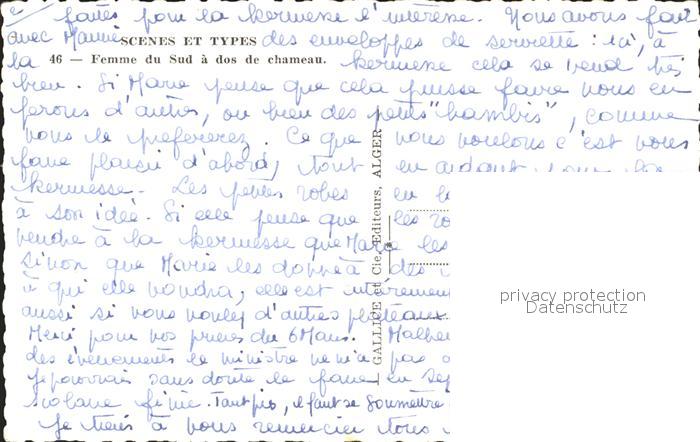 faites pour la kermesse l'intéresse. Nous avons fait
avec Mamie des enveloppes de serviette : ici, à
SCENES ET TYPES
la kermesse cela se vend très
46 — Femme du Sud à dos de chameau.
bien. Si Marie pense que cela puisse faire nous en
ferons d'autres, ou bien des petits "bambis", comme
vous le préférerez. Ce que nous voulons c'est vous
faire plaisir d'abord, tout en aidant pour la
kermesse. Les petites robes en
à son idée. Si elle pense que les
vendre à la kermesse que Marie les
sinon que Marie les donne à des
à qui elle voudra, elle est
aussi si vous voulez d'autres plateaux
Merci pour vos prières du 6 Mars.
des évènements le ministre ne m'a pas
Je pourrais sans doute le faire en
scolaire finie. Tant pis, il faut se soumettre
Je tiens à vous remercier tous
GALLICE et Cie, Editeurs, ALGER
privacy protection
Datenschutz